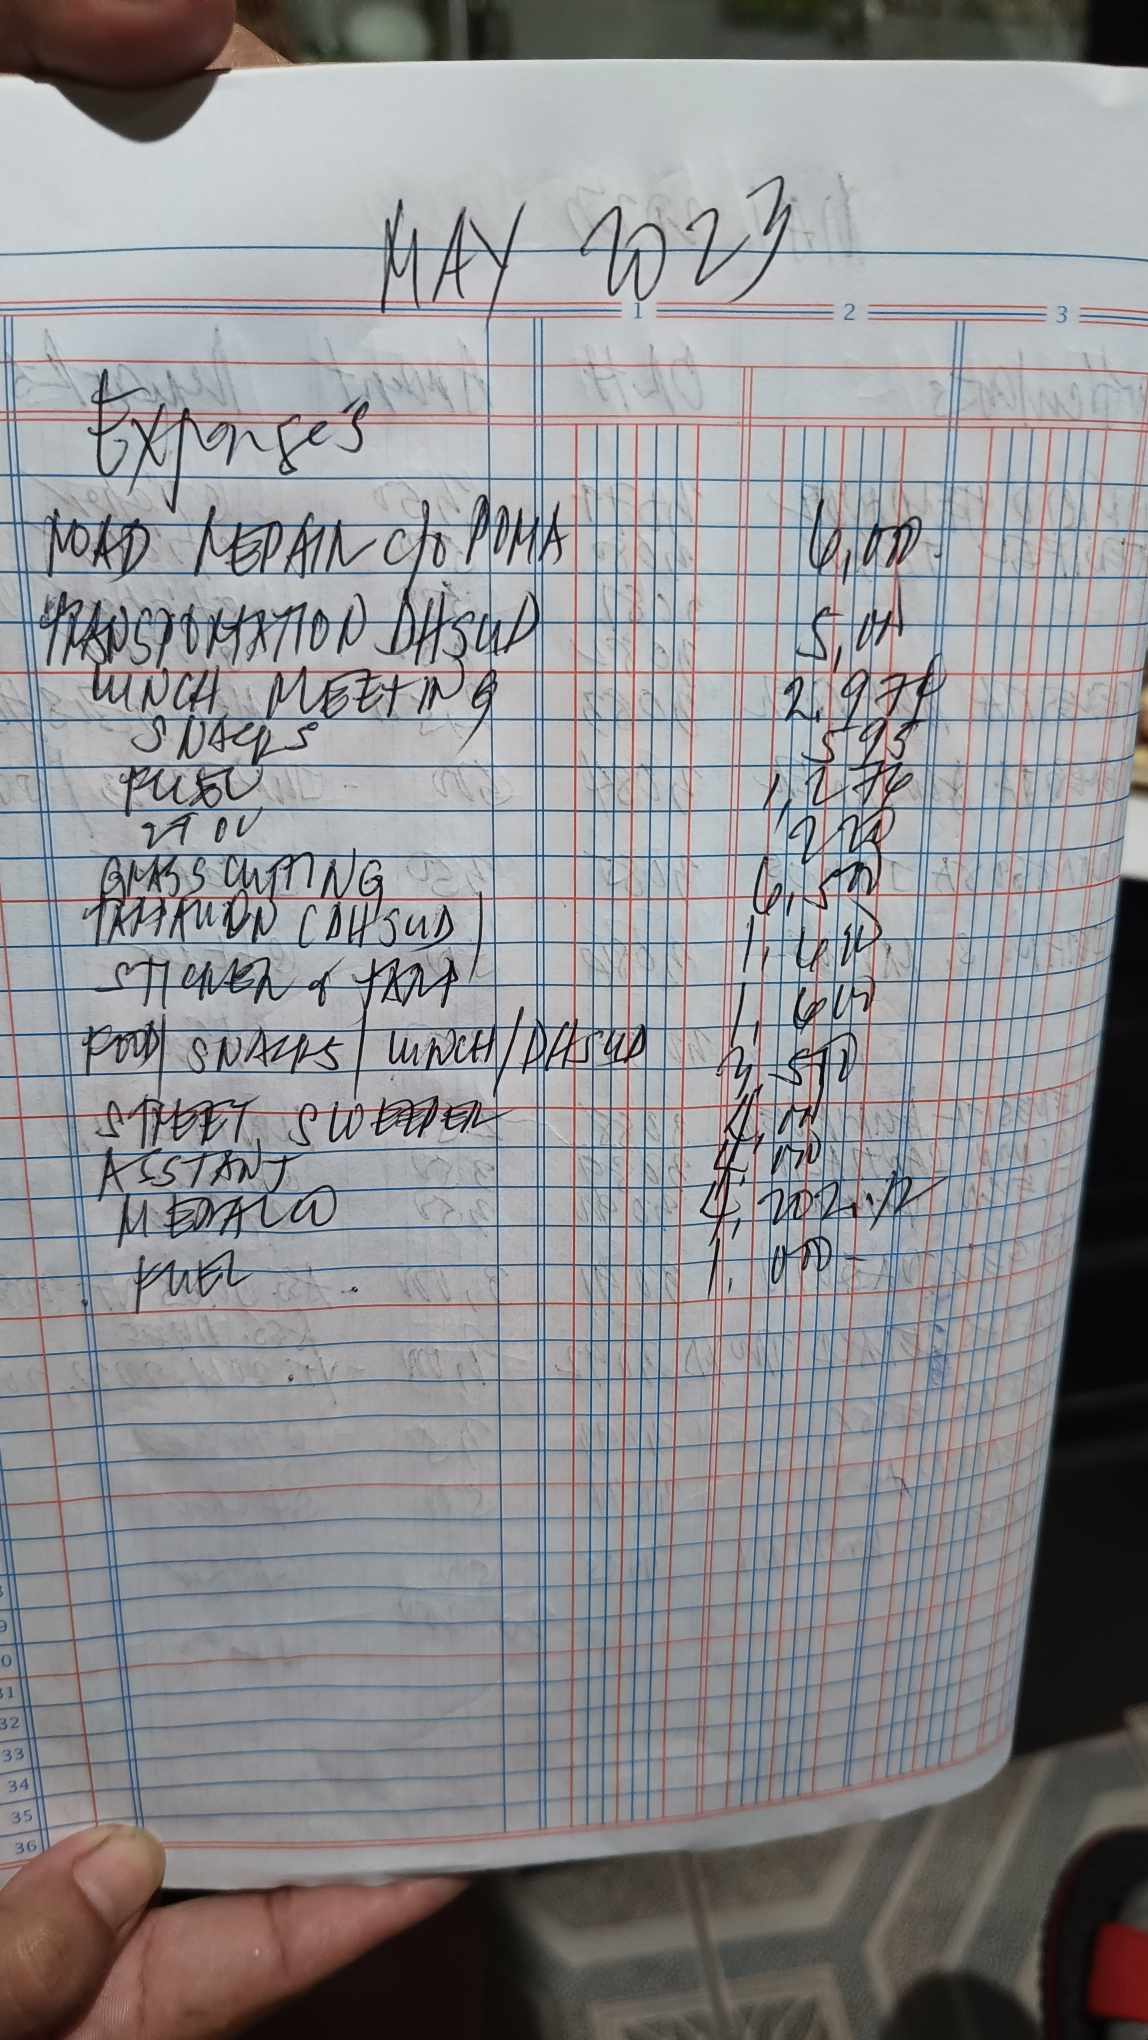 MAY 2023
1 2 3
Expenses
ROAD REPAIR c/o 6,000
TRANSPORTATION DHSUD 5,000
LUNCH MEETING 2,974
SNACKS 595
FUEL 1,276
220
GRASS CUTTING 6,500
(DHSUD)
STICKER & TARP 1,600
FOOD/ SNACKS/ LUNCH/DHSUD 3,500
STREET SWEEPER 4,000
ASSTANT 4,000
MERALCO 4,202.12
FUEL 1,000-
31
32
33
34
35
36